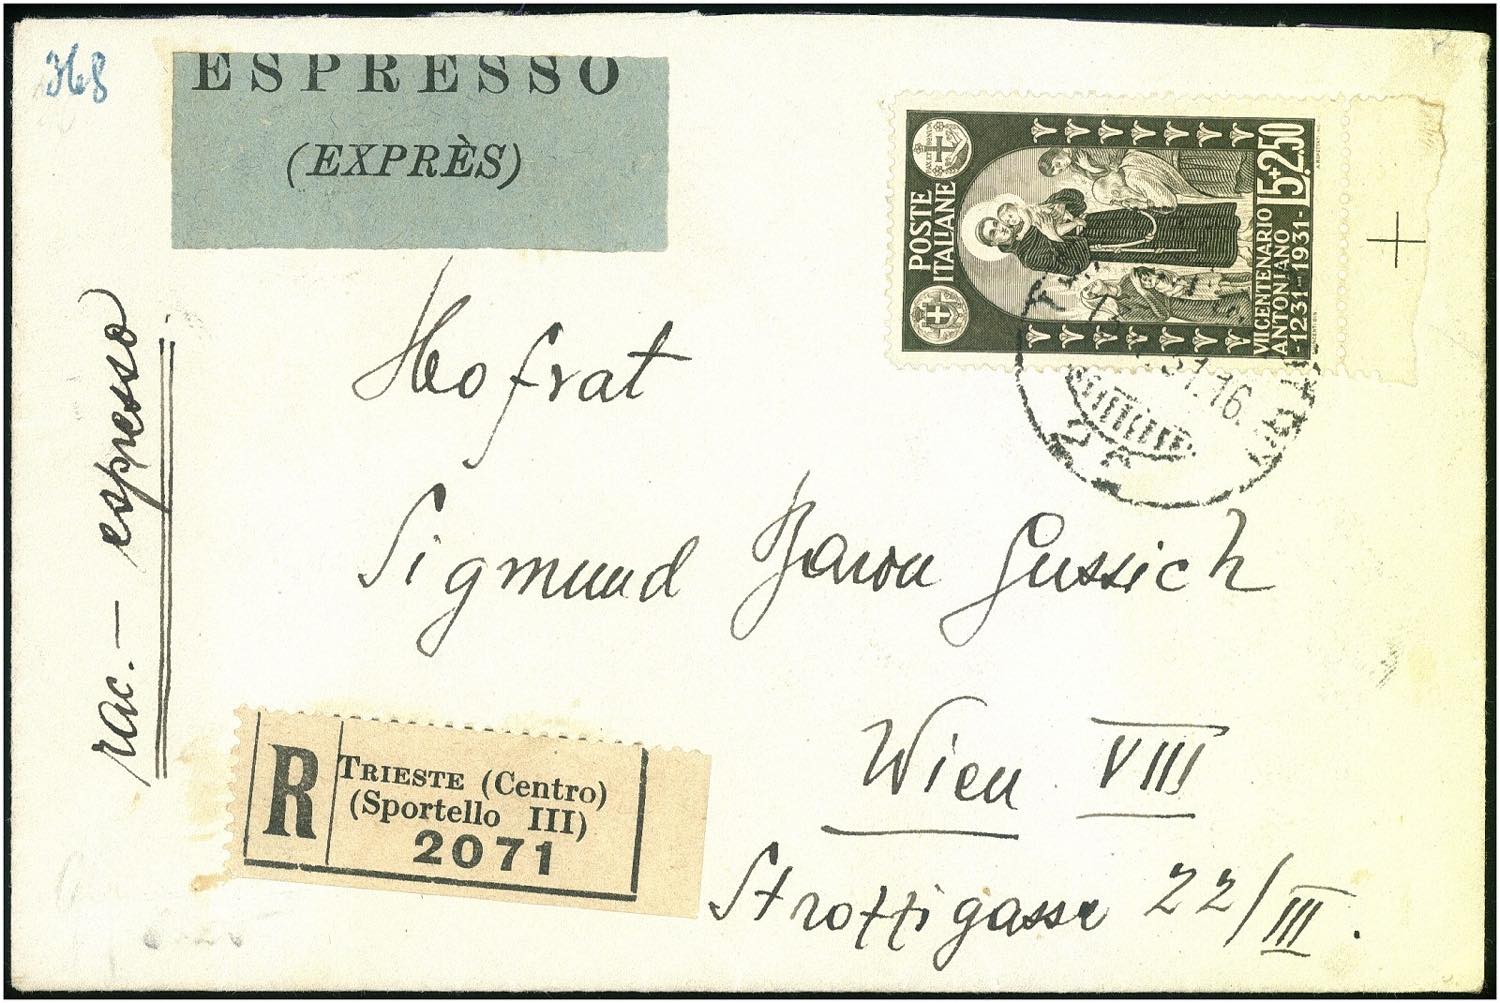 368
ESPRESSO
(EXPRÈS)
POSTE
ITALIANE
VII CENTENARIO
ANTONIANO
-1231-1931-
5+2.50
31.16
rac. - espresso
Hofrat
Sigmund Baron Gussich
Wien VIII
Strozzigasse 22/III.
R
TRIESTE (Centro)
(Sportello III)
2071